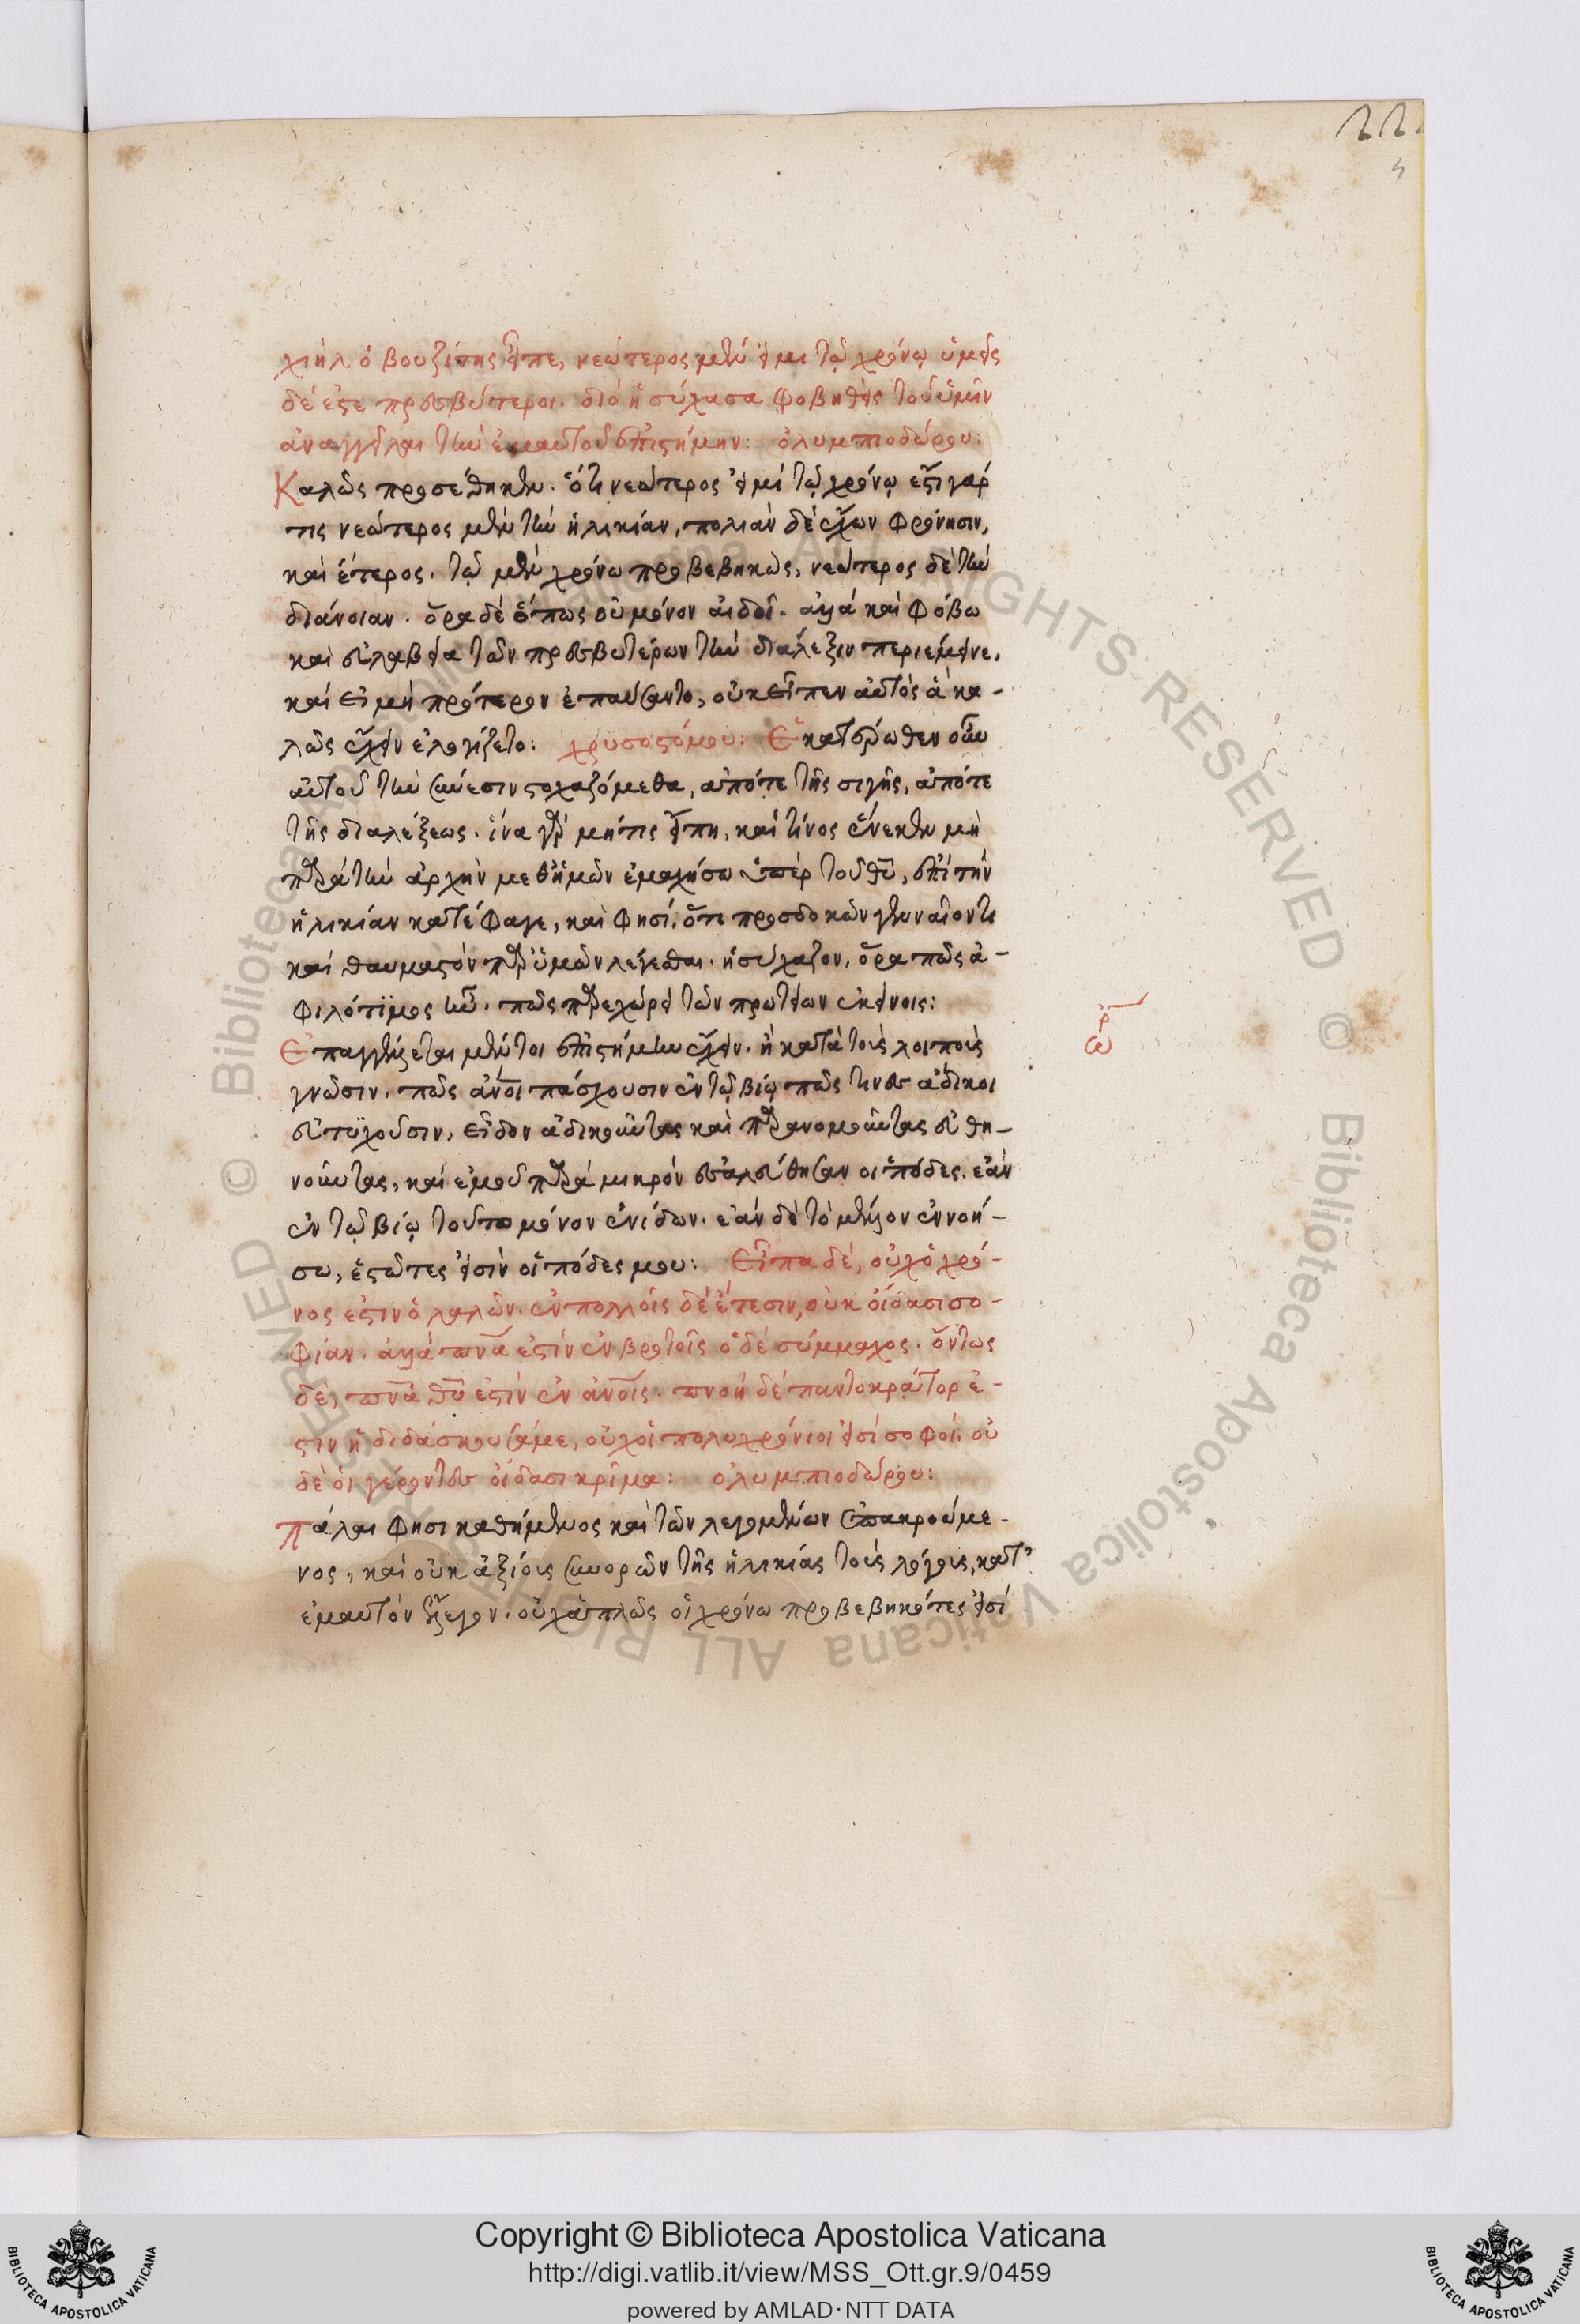 22.
χιὴλ ὁ βουζίτης εἶπε, νεώτερος μέν εἰμι τῷ χρόνῳ ὑμεῖς
δέ ἐστε πρεσβύτεροι. διὸ ἡσύχασα φοβηθεὶς τοῦ ὑμῖν
ἀναγγεῖλαι τὴν ἐμαυτοῦ ἐπιστήμην: ὀλυμπιοδώρου:
Καλῶς προσέθηκεν. ὅτι νεώτερος εἰμί τῷ χρόνῳ ἔστι γάρ
τις νεώτερος μὲν τὴν ἡλικίαν, πολιὰν δὲ ἔχων φρόνησιν,
καὶ ἕτερος. τῷ μὲν χρόνω προβεβηκὼς, νεώτερος δὲ τὴν
διάνοιαν. ὅρα δὲ ὅπως οὐ μόνον αἰδοῖ. ἀλλὰ καὶ φόβω
καὶ εὐλαβεία τῶν πρεσβυτέρων τὴν διάλεξιν περιέμεινε,
καί εἰ μὴ πρότερον ἐπαύσαντο, οὐκ εἶπεν αὐτὸς ἃ κα-
λῶς ἔχειν ἐλογίζετο: χρυσοστόμου: Ἑκατέρωθεν οὖν
αὐτοῦ τὴν σύνεσιν στοχαζόμεθα, ἀπό τε τῆς σιγῆς, ἀπό τε
τῆς διαλέξεως. ἵνα γὰρ μή τις εἴπη, καὶ τίνος ἕνεκεν μὴ
παρὰ τὴν ἀρχὴν μεθ' ἡμῶν ἐμαχήσω ὑπὲρ τοῦ θῦ, ἐπὶ τὴν
ἡλικίαν κατέφαγε, καὶ φησί, ὅτι προσδοκῶν γενναῖον τι
καὶ θαυμαστὸν παρ' ὑμῶν λέγεσθαι. ἡσύχαζον, ὅρα πῶς ἀ-
φιλότιμος ἦν. πῶς παρεχώρει τῶν πρωτείων ἐκείνοις:
Ἐπαγγέλλεται μέν τοι ἐπιστήμην ἔχειν. ἢ κατὰ τοὺς λοιποὺς
γνῶσιν. πῶς ἄνοι πάσχουσιν ἐν τῷ βίῳ πῶς τινες ἄδικοι
εὐτυχοῦσιν, εἶδον ἀδικοῦντας καὶ παρανομοῦντας εὐθη-
νοῦντας, καὶ ἐμοῦ παρὰ μικρὸν ἐσαλεύθησαν οἱ πόδες. ἐὰν
ἐν τῷ βίῳ τούτω μόνον ἐνίδων. ἐὰν δὲ τὸ μέλλον ἐννοή-
σω, ἑστῶτες εἰσὶν οἱ πόδες μου: Εἶπα δέ, οὐχ ὁ χρό-
νος ἐστιν ὁ λαλῶν. ἐν πολλοῖς δὲ ἔτεσιν, οὐκ οἴδασι σο-
φίαν. ἀλλὰ πνᾶ ἐστὶν ἐν βροτοῖς ὁ δὲ σύμμαχος. ὄντως
δέ, πνᾶ θῦ ἐστὶν ἐν ἀνοῖς. πνοὴ δὲ παντοκράτορ ἐ-
στιν ἡ διδάσκουσά με, οὐχ οἱ πολυχρόνιοι εἰσί σοφοί. οὐ
δὲ οἱ γέροντες οἴδασι κρῖμα: ὀλυμπιοδώρου:
Πάλαι φησι καθήμενος καὶ τῶν λεγομένων ἐπακροώμε-
νος, καὶ οὐκ ἀξίους συνορῶν τῆς ἡλικίας τοὺς λόγους, κατ'
ἐμαυτὸν ἔλεγον. οὐχ ἁπλῶς οἱ χρόνω προβεβηκότες εἰσί
Copyright © Biblioteca Apostolica Vaticana
http://digi.vatlib.it/view/MSS_Ott.gr.9/0459
powered by AMLAD·NTT DATA